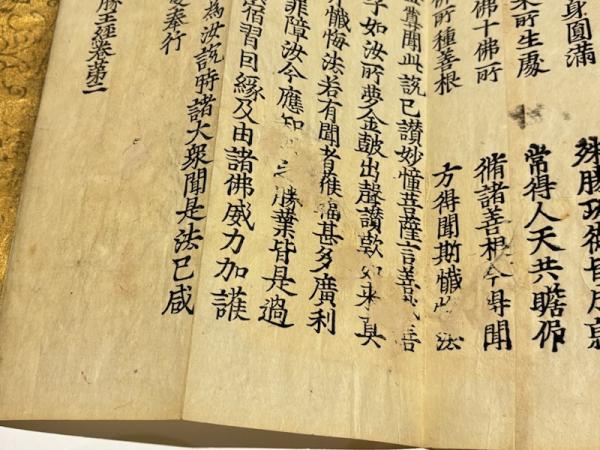 身圓滿 殊勝功德皆成就
來所生處 常得人天共瞻仰
佛十佛所 脩諸善根今得聞
所種善根 方得聞斯懺悔法
尊聞此說已讚妙幢菩薩言善哉善
子如汝所夢金鼓出聲讚歎如來真
懺悔法若有聞者獲福甚多廣利
罪障汝今應知之勝業皆是過
宿習因緣及由諸佛威力加護
為汝說時諸大眾聞是法已咸
受奉行
勝王經卷第二